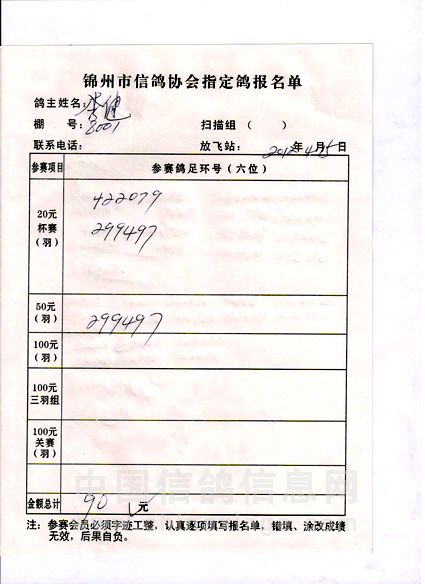 锦州市信鸽协会指定鸽报名单
鸽主姓名:
棚 号: 8001 扫描组 ( )
联系电话: 放飞站: 2012年4月15日
参赛项目 参赛鸽足环号（六位）
20元
杯赛
（羽）
422079
299497
50元
（羽）
299497
100元
（羽）
100元
三羽组
100元
关赛
（羽）
中国信鸽信息网
金额总计 90 元
注: 参赛会员必须字迹工整，认真逐项填写报名单，错填、涂改成绩
无效，后果自负。